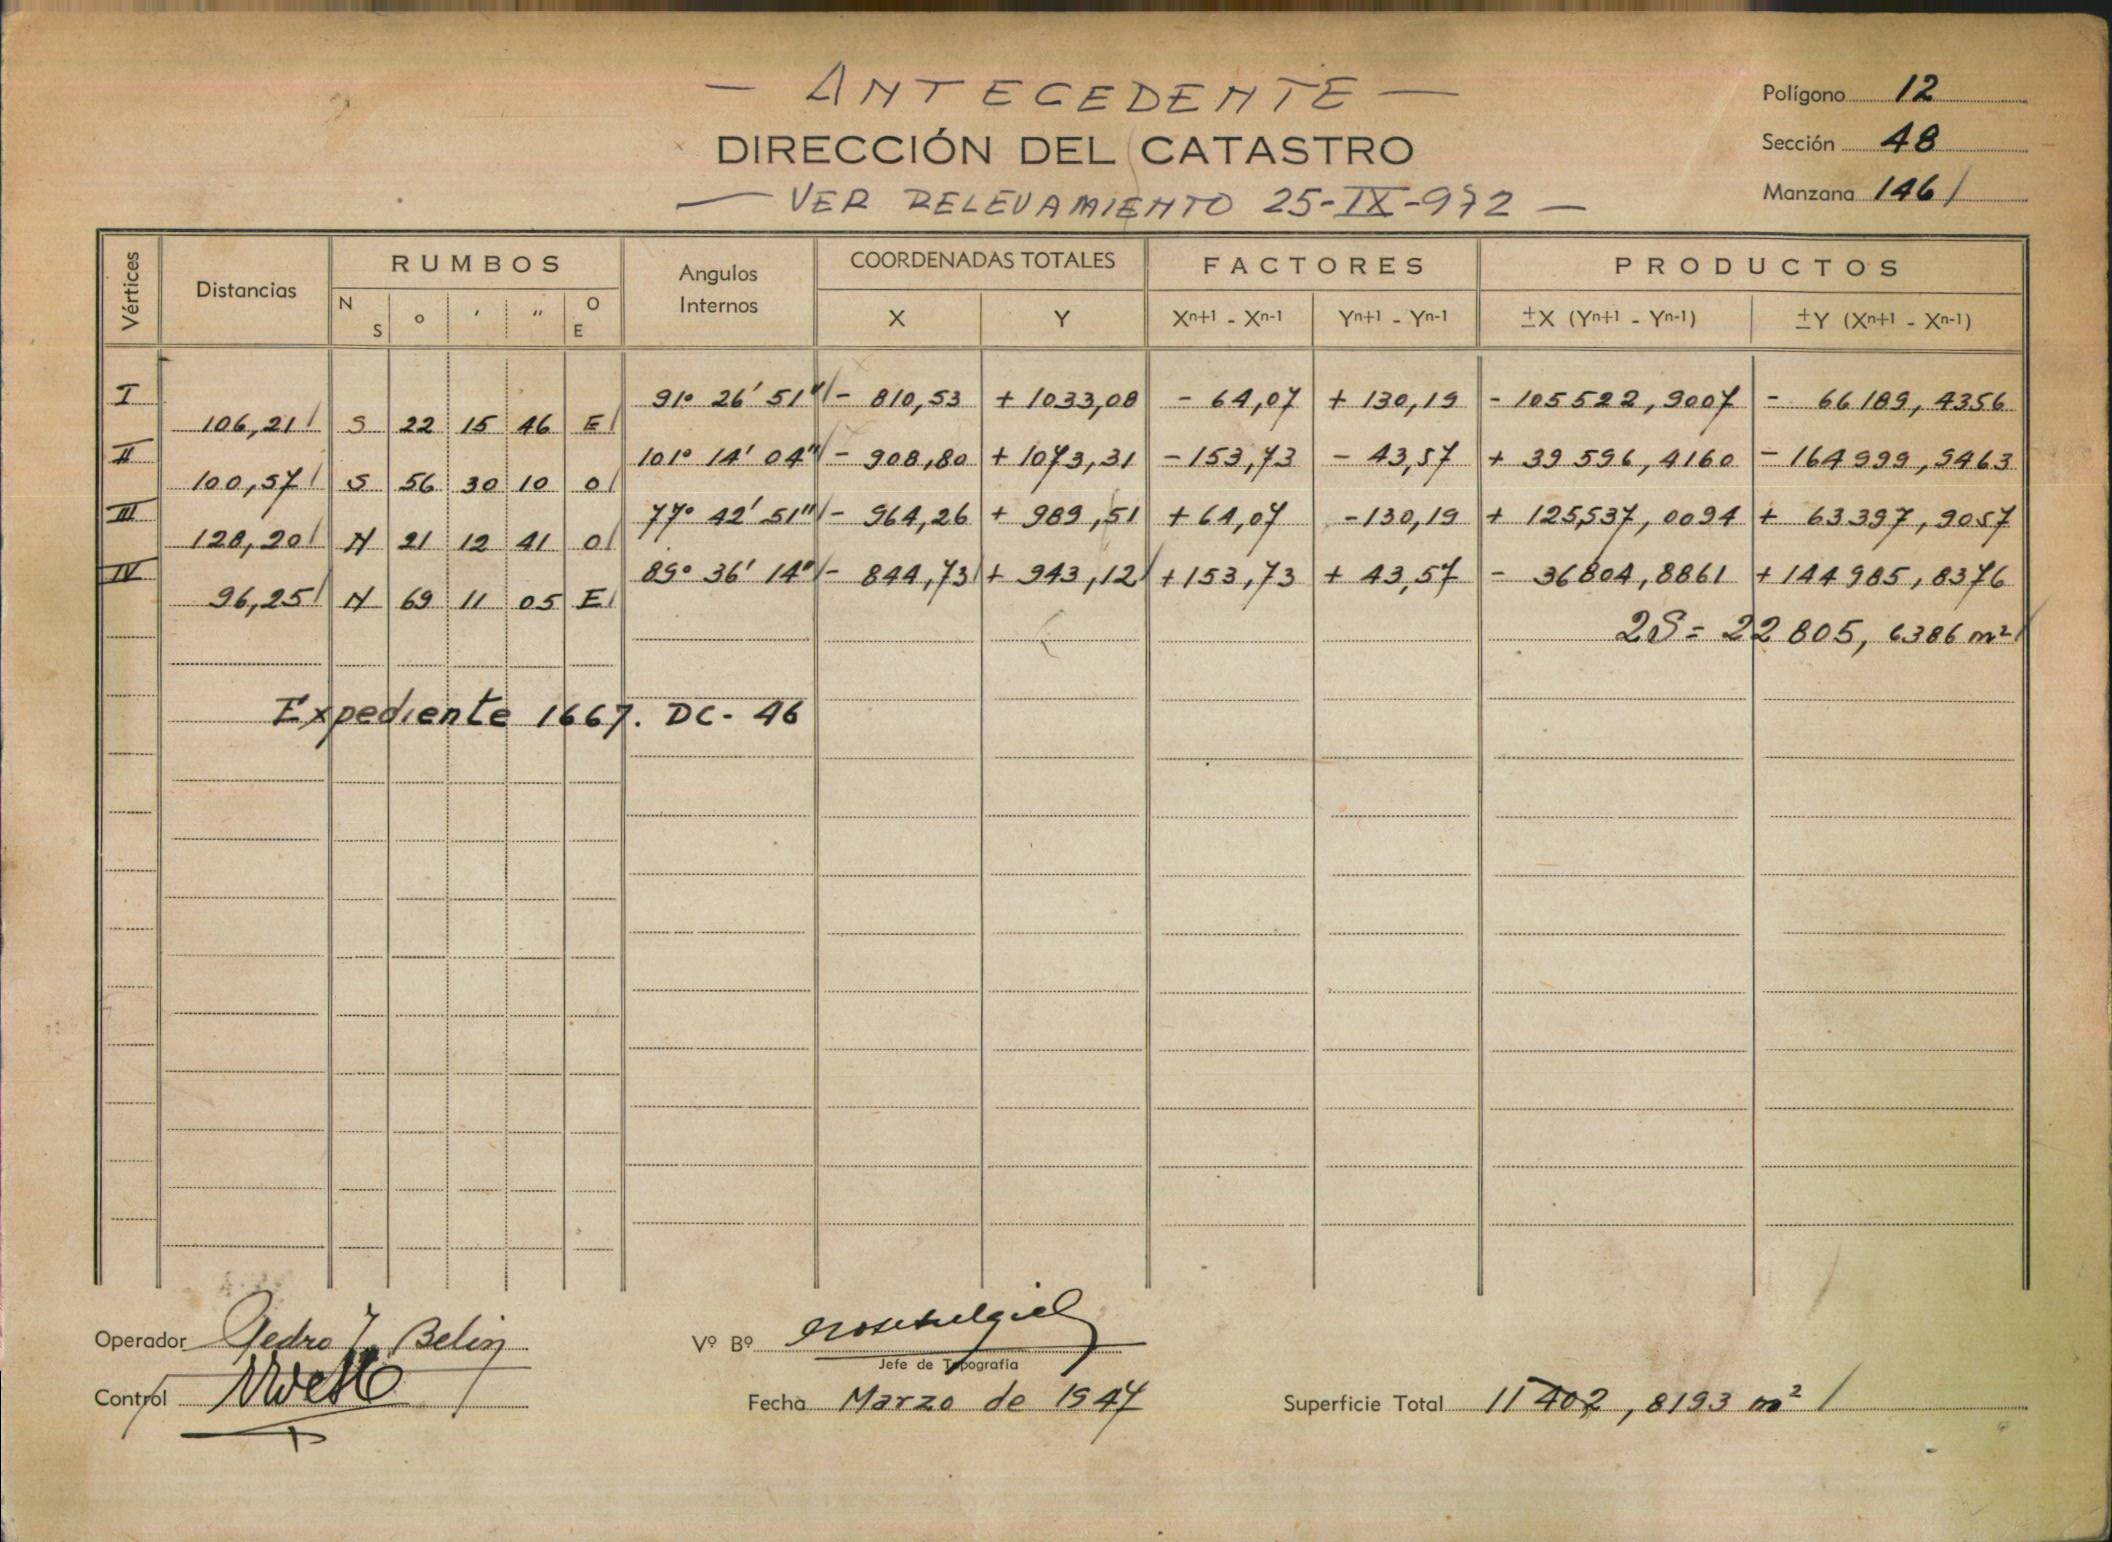 — ANTECEDENTE —
DIRECCIÓN DEL CATASTRO
— VER RELEVAMIENTO 25-IX-972 —
Polígono 12
Sección 48
Manzana 146/
Vértices Distancias RUMBOS Angulos Internos COORDENADAS TOTALES FACTORES PRODUCTOS
N S o ′ ″ O E X Y Xⁿ⁺¹ - Xⁿ⁻¹ Yⁿ⁺¹ - Yⁿ⁻¹ ±X (Yⁿ⁺¹ - Yⁿ⁻¹) ±Y (Xⁿ⁺¹ - Xⁿ⁻¹)
I 91° 26′ 51″/ - 810,53 + 1033,08 - 64,07 + 130,19 - 105522,9007 - 66189,4356
106,21/ S 22 15 46 E/
II 101° 14′ 04″/ - 908,80 + 1073,31 - 153,73 - 43,57 + 39596,4160 - 164999,9463
100,57/ S 56 30 10 O/
III 77° 42′ 51″/ - 964,26 + 989,51 + 64,07 - 130,19 + 125537,0094 + 63397,9057
128,20/ N 21 12 41 O/
IV 89° 36′ 14″/ - 844,73/ + 943,12/ + 153,73 + 43,57 - 36804,8861 + 144985,8376
96,25/ N 69 11 05 E/
2S = 22805,6386 m²/
Expediente 1667. DC - 46
Operador Pedro J. Belin
Control
Vº Bº
Jefe de Topografía
Fecha Marzo de 1947
Superficie Total 11402,8193 m² /